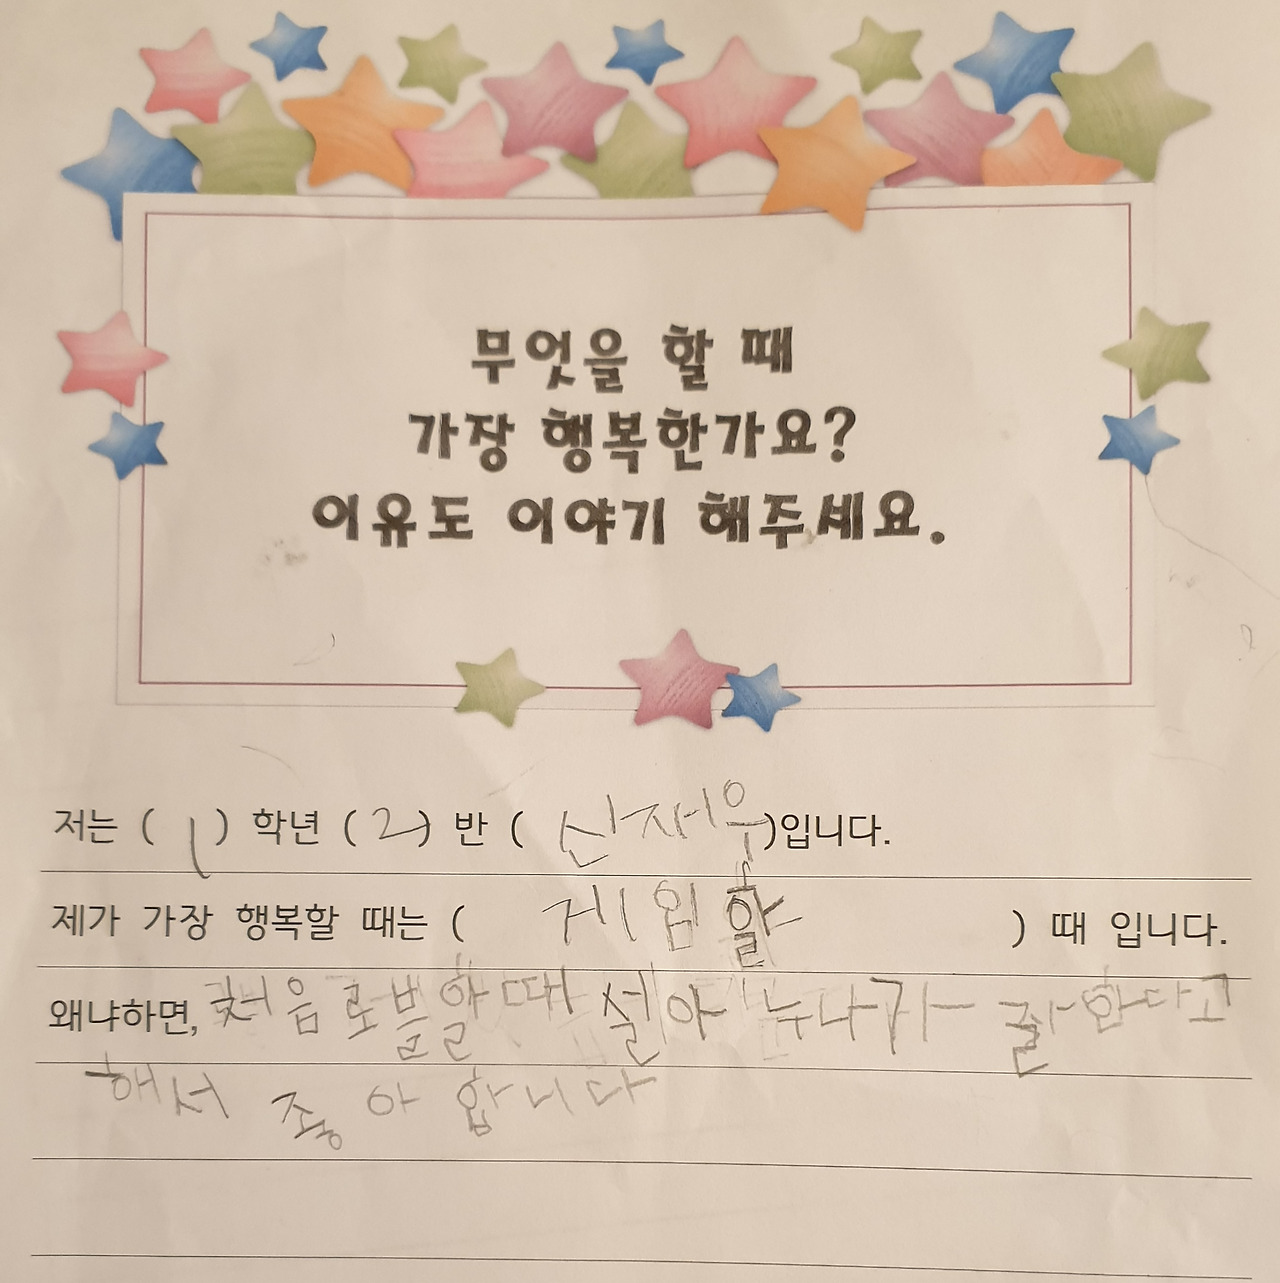 무엇을 할 때
가장 행복한가요?
이유도 이야기 해주세요.
저는 ( 1 ) 학년 ( 2 ) 반 ( 신재우 )입니다.
제가 가장 행복할 때는 ( 게임할 ) 때 입니다.
왜냐하면, 처음 로블할 때 설아 누나가 잘한다고
해서 좋아 합니다